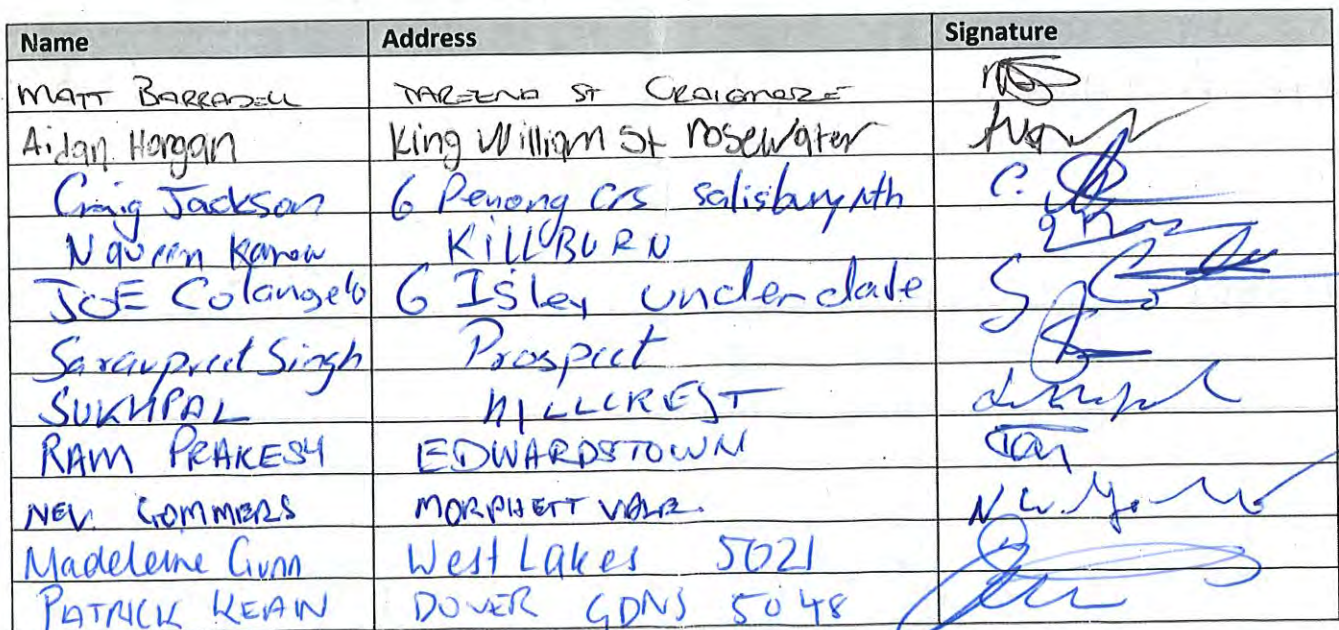 Name Address Signature
MATT BARRADELL TAREENA ST CRAIGMORE
Aidan Horgan King William St rosewater
Craig Jackson 6 Penong crs salisbury nth C.
Naveen KILLBURN
JOE Colangelo 6 Isley underdale
Saravpreet Singh Prospect
SUKHPAL HILLCREST
RAM PRAKESH EDWARDSTOWN
NEV. GOMMERS MORPHETT VALE.
Madeleine Gunn West Lakes 5021
PATRICK KEAIN DOVER GDNS 5048